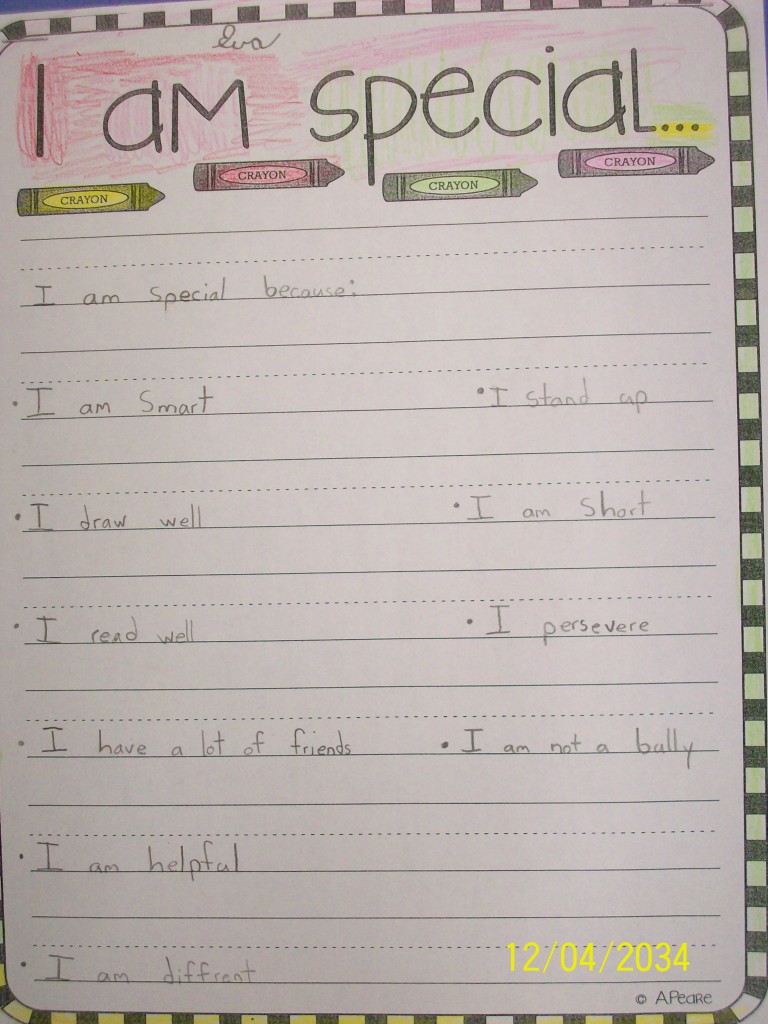 Eva
I am special...
CRAYON CRAYON CRAYON CRAYON
I am special because:
• I am Smart • I stand up
• I draw well • I am Short
• I read well • I persevere
• I have a lot of friends • I am not a bully
• I am helpful
• I am diffrent
12/04/2034
© APeare